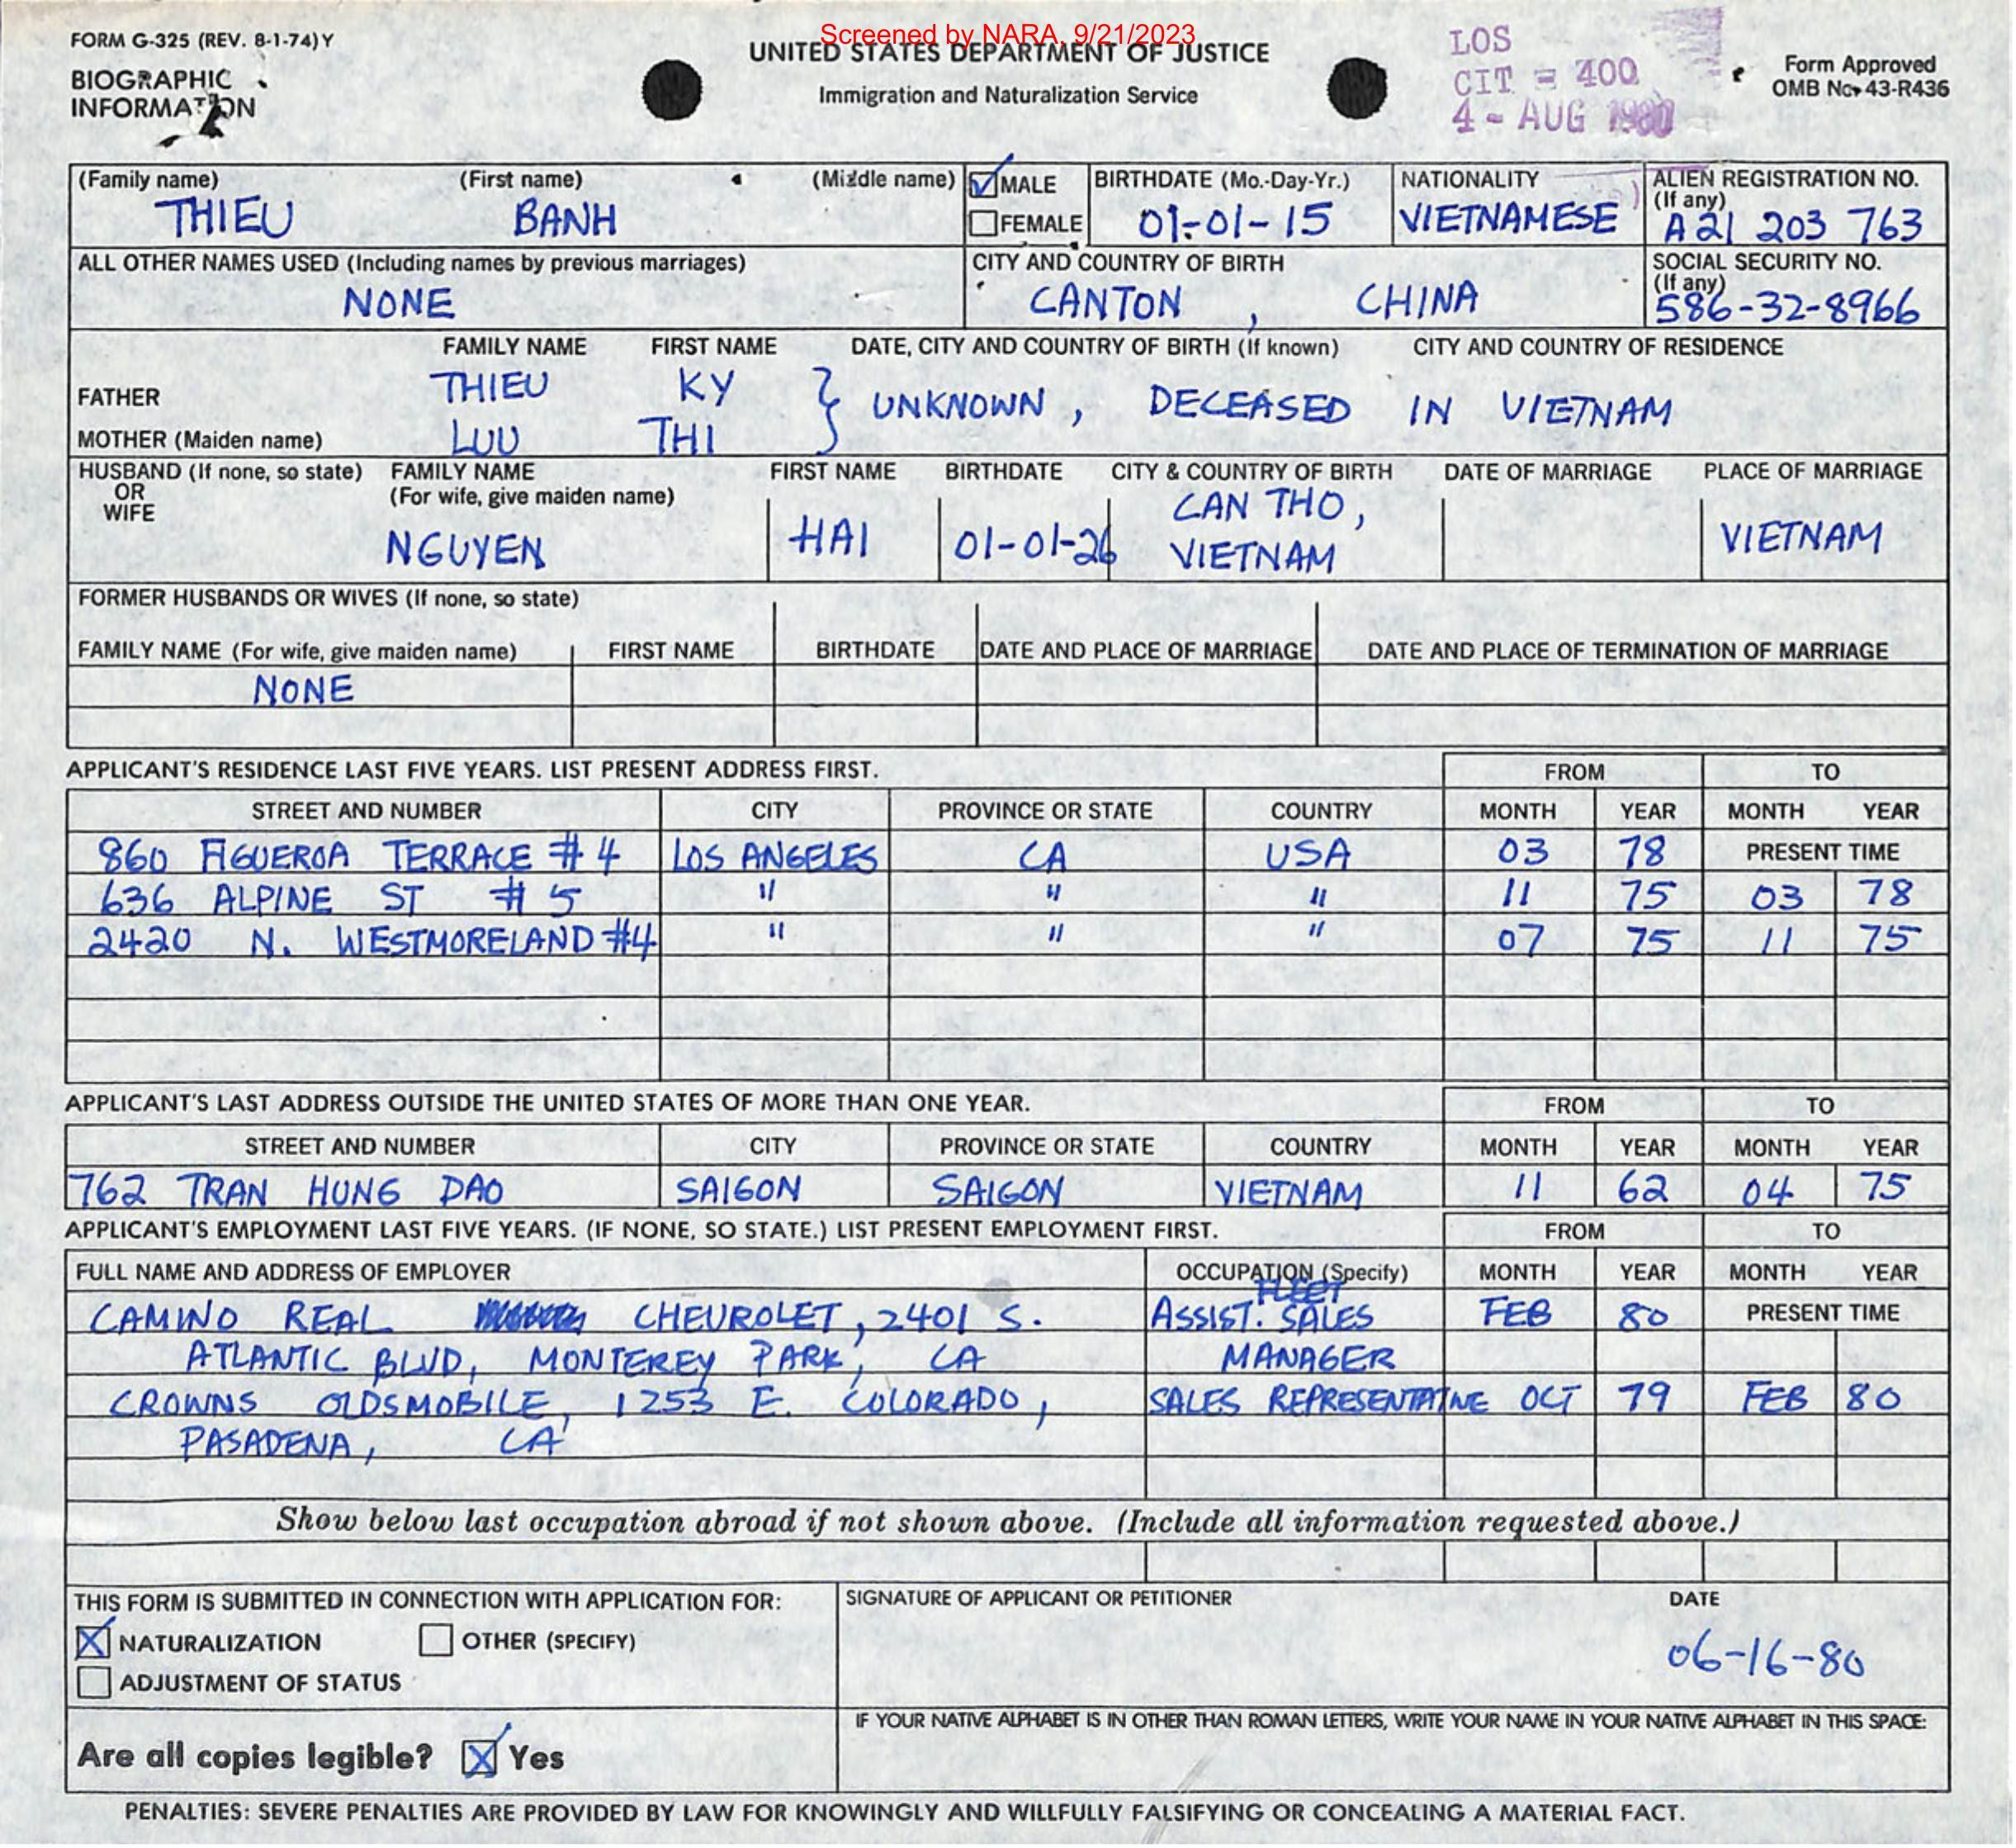 Screened by NARA, 9/21/2023
FORM G-325 (REV. 8-1-74) Y
BIOGRAPHIC
INFORMATION
UNITED STATES DEPARTMENT OF JUSTICE
Immigration and Naturalization Service
LOS
CIT = 400
4 - AUG 1980
Form Approved
OMB No. 43-R436
(Family name) (First name) (Middle name) MALE BIRTHDATE (Mo.-Day-Yr.) NATIONALITY ALIEN REGISTRATION NO.
(If any)
THIEU BANH FEMALE 01-01-15 VIETNAMESE A21 203 763
ALL OTHER NAMES USED (Including names by previous marriages) CITY AND COUNTRY OF BIRTH SOCIAL SECURITY NO.
(If any)
NONE CANTON , CHINA 586-32-8966
FAMILY NAME FIRST NAME DATE, CITY AND COUNTRY OF BIRTH (If known) CITY AND COUNTRY OF RESIDENCE
FATHER THIEU KY } UNKNOWN , DECEASED IN VIETNAM
MOTHER (Maiden name) LUU THI
HUSBAND (If none, so state) FAMILY NAME FIRST NAME BIRTHDATE CITY & COUNTRY OF BIRTH DATE OF MARRIAGE PLACE OF MARRIAGE
OR (For wife, give maiden name)
WIFE CAN THO,
NGUYEN HAI 01-01-26 VIETNAM VIETNAM
FORMER HUSBANDS OR WIVES (If none, so state)
FAMILY NAME (For wife, give maiden name) FIRST NAME BIRTHDATE DATE AND PLACE OF MARRIAGE DATE AND PLACE OF TERMINATION OF MARRIAGE
NONE
APPLICANT'S RESIDENCE LAST FIVE YEARS. LIST PRESENT ADDRESS FIRST. FROM TO
STREET AND NUMBER CITY PROVINCE OR STATE COUNTRY MONTH YEAR MONTH YEAR
860 FIGUEROA TERRACE #4 LOS ANGELES CA USA 03 78 PRESENT TIME
636 ALPINE ST #5 " " " 11 75 03 78
2420 N. WESTMORELAND #4 " " " 07 75 11 75
APPLICANT'S LAST ADDRESS OUTSIDE THE UNITED STATES OF MORE THAN ONE YEAR. FROM TO
STREET AND NUMBER CITY PROVINCE OR STATE COUNTRY MONTH YEAR MONTH YEAR
762 TRAN HUNG DAO SAIGON SAIGON VIETNAM 11 62 04 75
APPLICANT'S EMPLOYMENT LAST FIVE YEARS. (IF NONE, SO STATE.) LIST PRESENT EMPLOYMENT FIRST. FROM TO
FULL NAME AND ADDRESS OF EMPLOYER OCCUPATION (Specify) MONTH YEAR MONTH YEAR
FLEET
CAMINO REAL CHEVROLET, 2401 S. ASSIST. SALES FEB 80 PRESENT TIME
ATLANTIC BLVD, MONTEREY PARK, CA MANAGER
CROWNS OLDSMOBILE, 1253 E. COLORADO, SALES REPRESENTATIVE OCT 79 FEB 80
PASADENA, CA
Show below last occupation abroad if not shown above. (Include all information requested above.)
THIS FORM IS SUBMITTED IN CONNECTION WITH APPLICATION FOR: SIGNATURE OF APPLICANT OR PETITIONER DATE
NATURALIZATION OTHER (SPECIFY)
06-16-80
ADJUSTMENT OF STATUS
IF YOUR NATIVE ALPHABET IS IN OTHER THAN ROMAN LETTERS, WRITE YOUR NAME IN YOUR NATIVE ALPHABET IN THIS SPACE:
Are all copies legible? Yes
PENALTIES: SEVERE PENALTIES ARE PROVIDED BY LAW FOR KNOWINGLY AND WILLFULLY FALSIFYING OR CONCEALING A MATERIAL FACT.